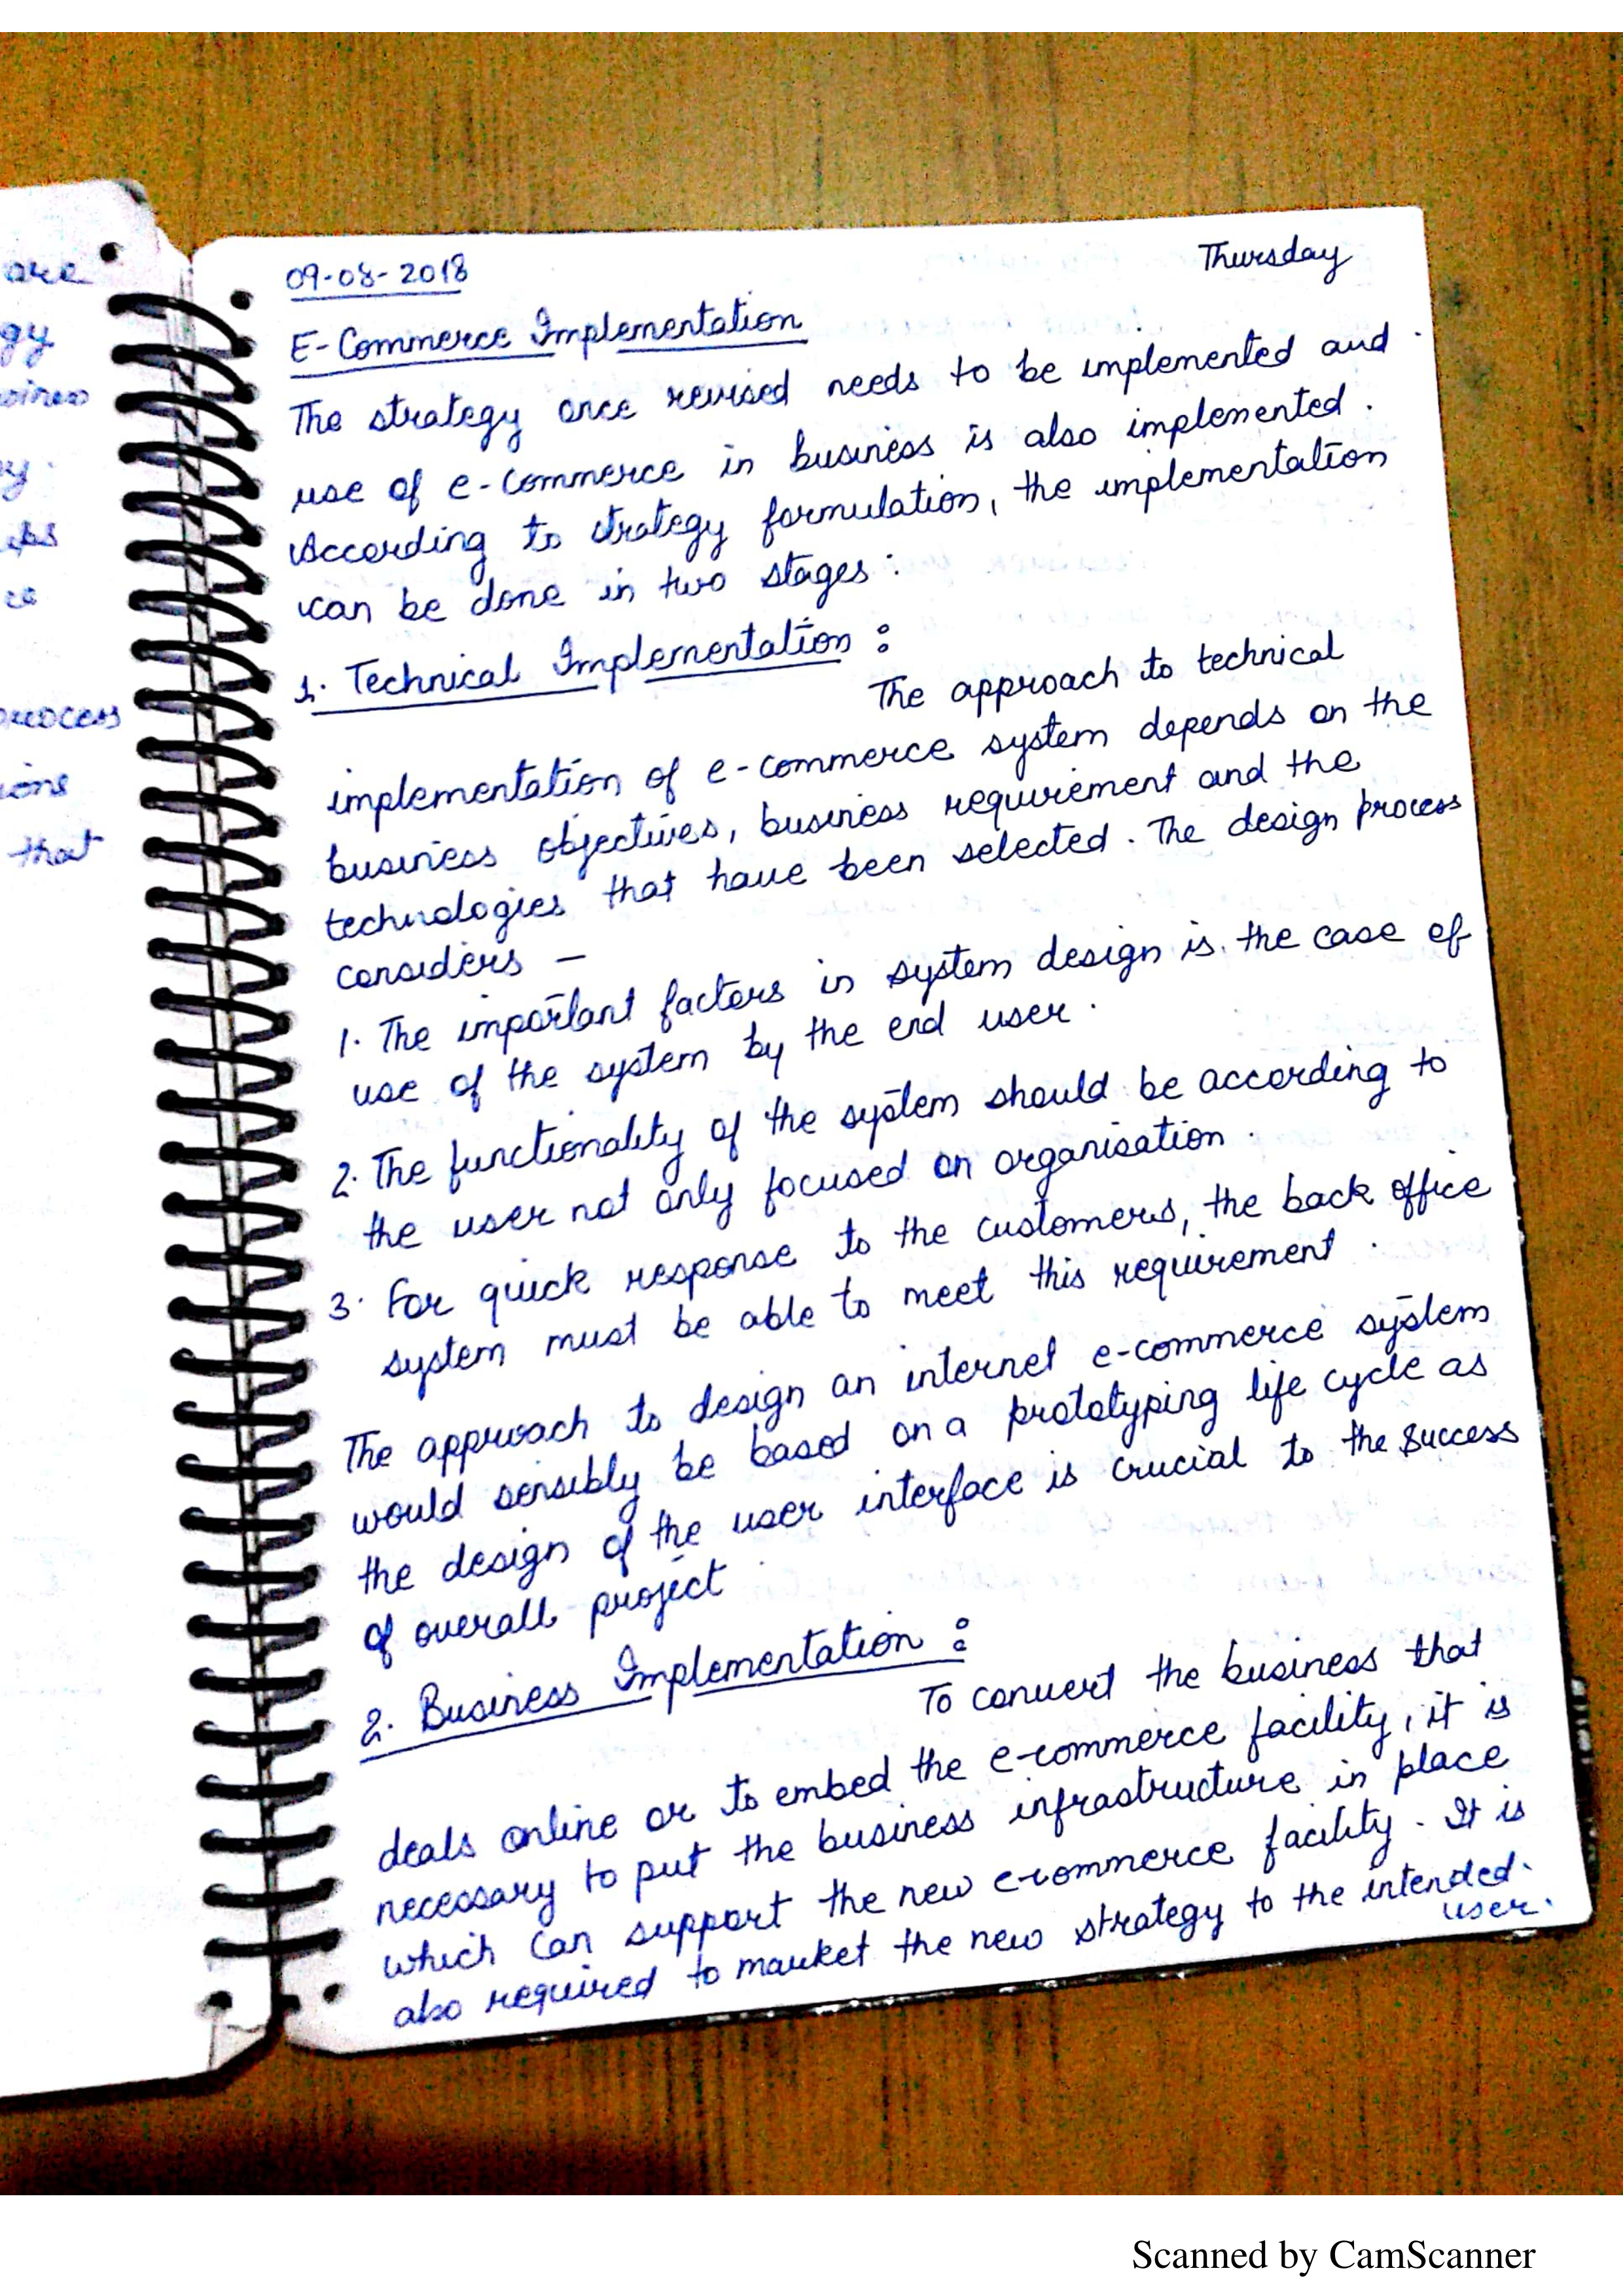 are
gy
ces
process
ions
that
09-08-2018
Thursday
E-Commerce Implementation
The strategy once revised needs to be implemented and
use of e-commerce in business is also implemented.
According to strategy formulation, the implementation
can be done in two stages:
1. Technical Implementation:
The approach to technical
implementation of e-commerce system depends on the
business objectives, business requirement and the
technologies that have been selected. The design process
considers –
1. The important factors in system design is the case of
use of the system by the end user.
2. The functionality of the system should be according to
the user not only focused on organisation.
3. For quick response to the customers, the back office
system must be able to meet this requirement.
The approach to design an internet e-commerce system
would sensibly be based on a prototyping life cycle as
the design of the user interface is crucial to the success
of overall project.
2. Business Implementation:
To convert the business that
deals online or to embed the e-commerce facility, it is
necessary to put the business infrastructure in place
which can support the new e-commerce facility. It is
also required to market the new strategy to the intended
user.
Scanned by CamScanner